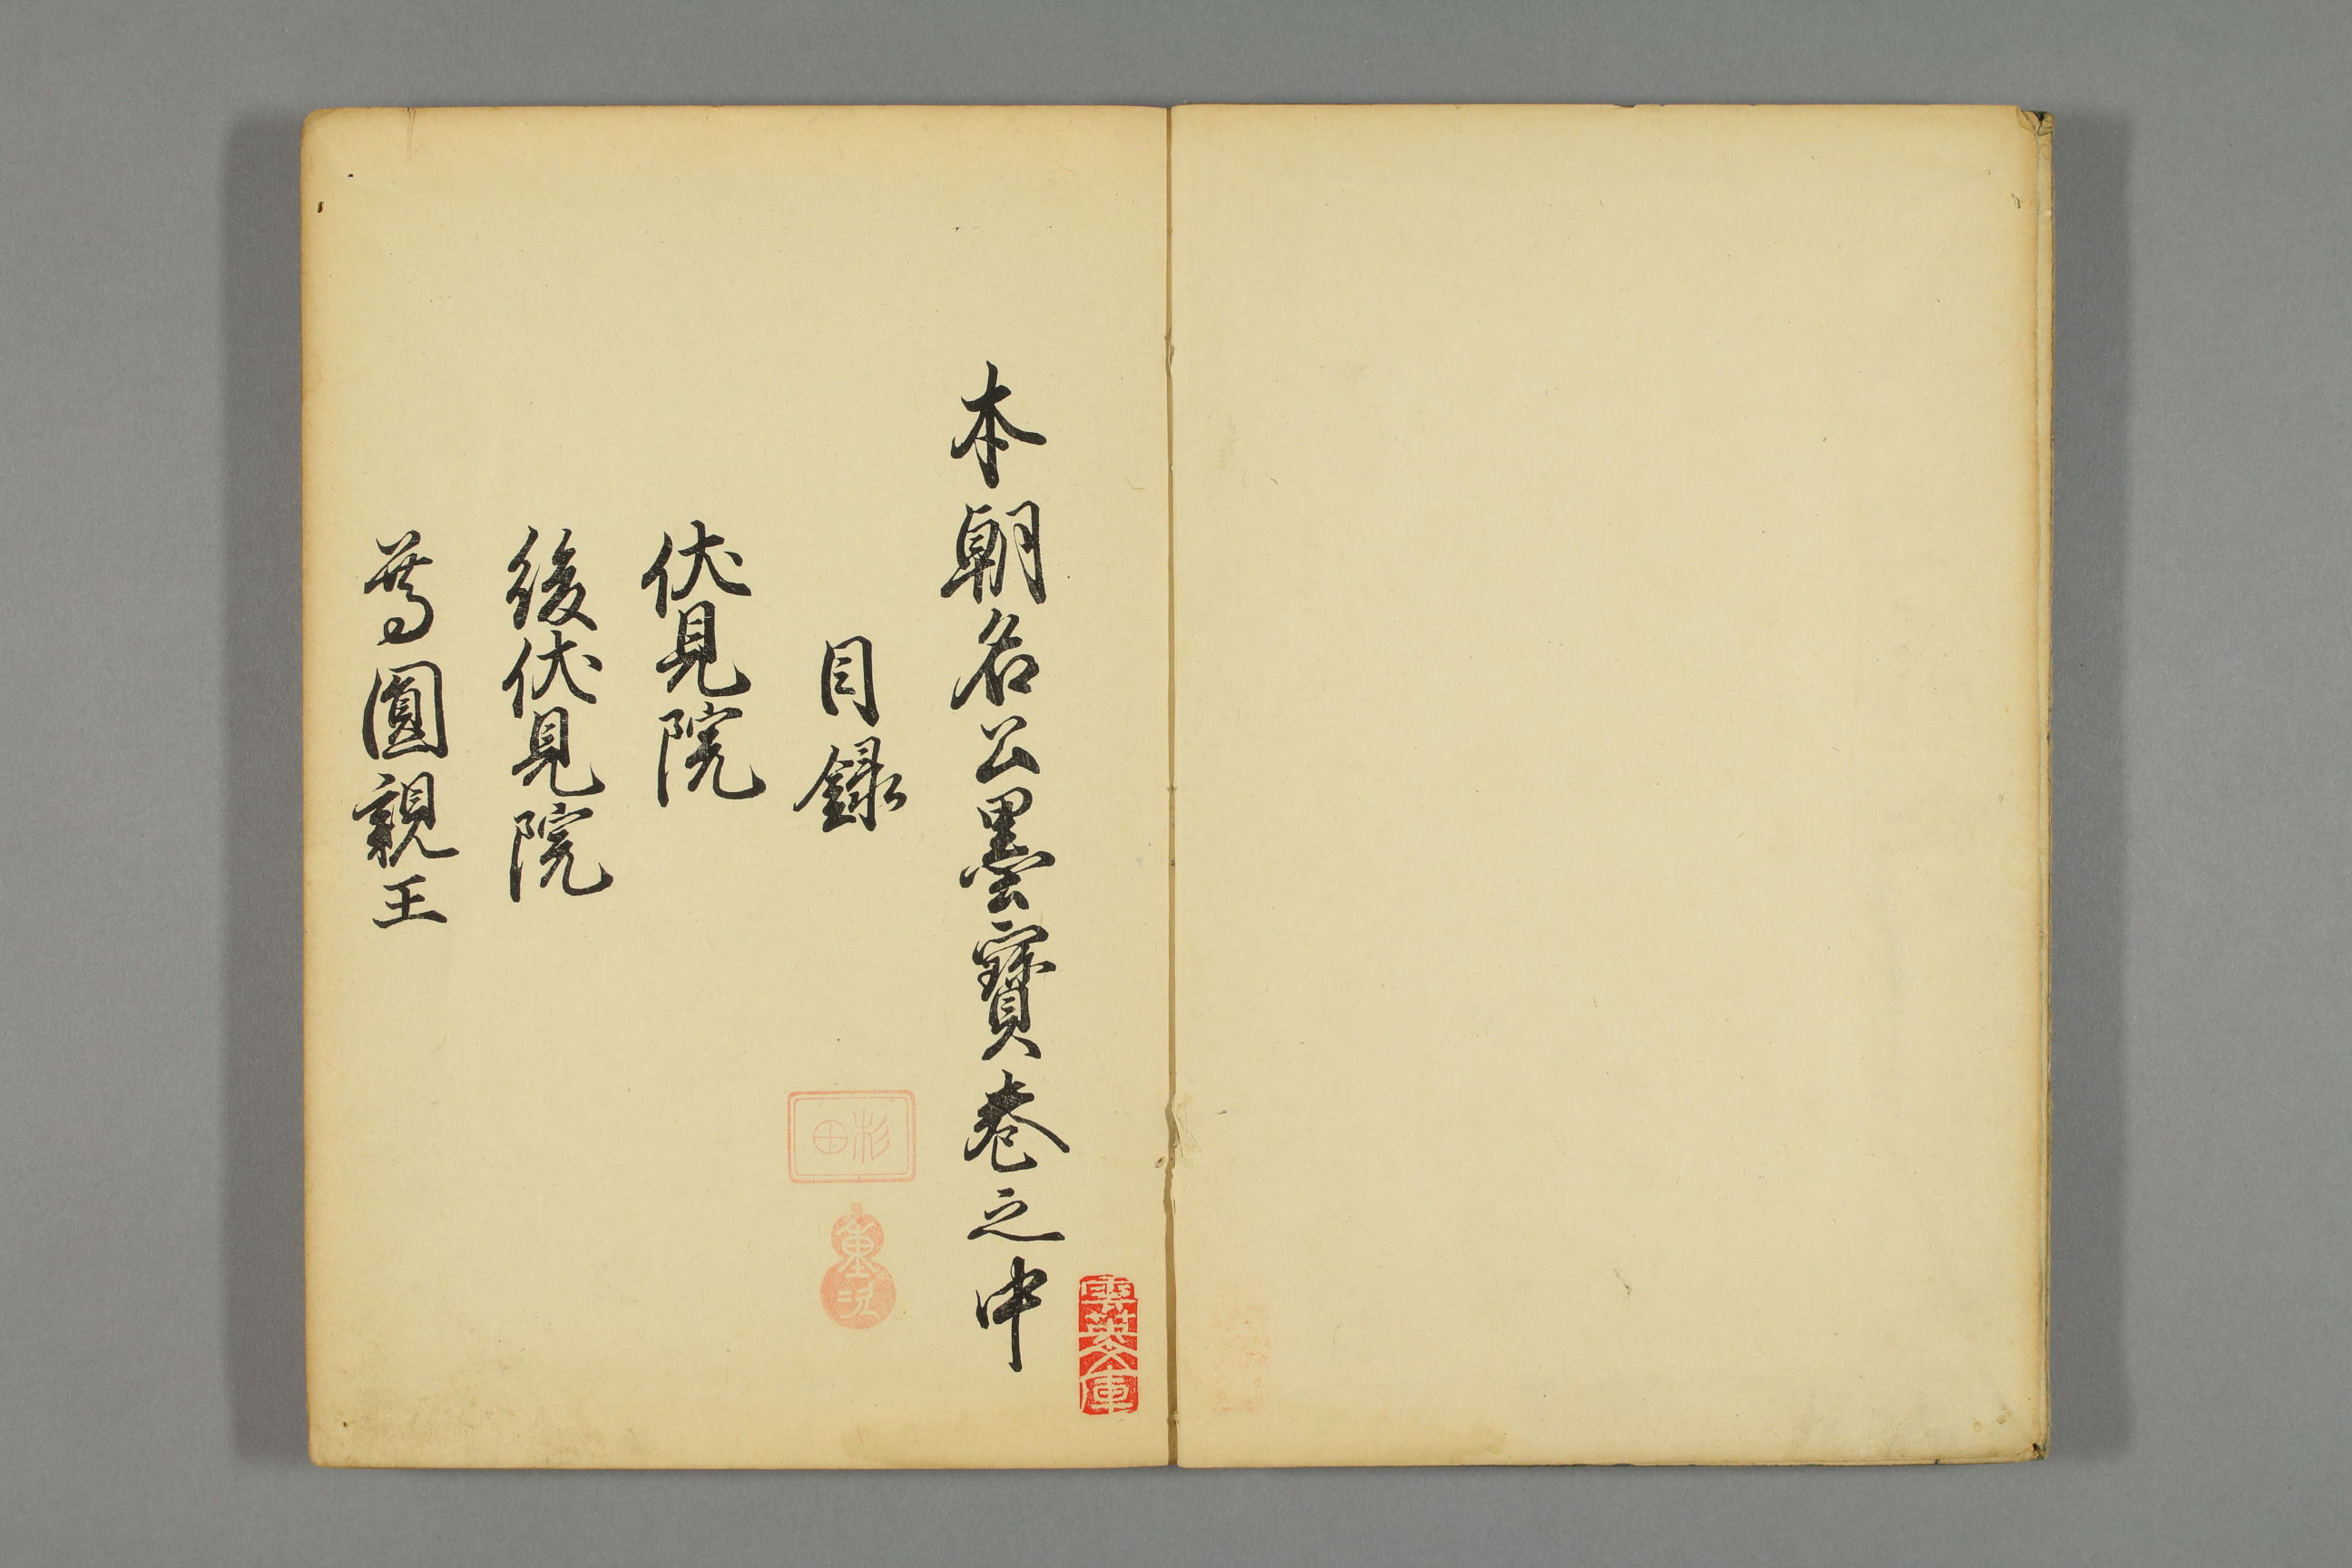 本朝名公墨寶巻之中
目録
伏見院
後伏見院
尊圓親王
雲英文庫
杉田